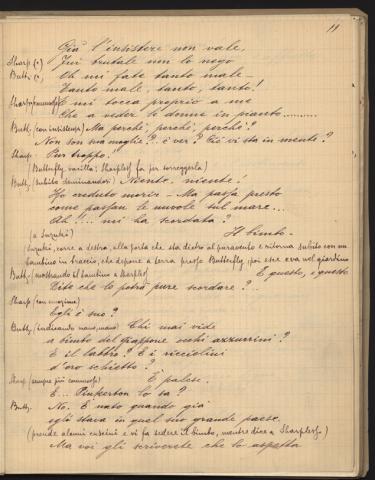 11
Già l'insistere non vale,
Sharp. (s.) Fui brutale non lo nego
Butt. (s.) Oh mi fate tanto male —
Tanto male, tanto, tanto!
Sharp. (commosso) E mi tocca proprio a me
Che a veder le donne in pianto..........
Butt. (con insistenza) Ma perchè, perchè, perchè?
Non son sua moglie?.. è ver? C'è vi sta in mente?
Sharp. Pur troppo.
(Butterfly vacilla: Sharpless fa per sorreggerla)
Butt. (subito dominandosi) Niente, niente!
Ho creduto morir — Ma passa presto
come passan le nuvole sul mare...
Ah!!... mi ha scordata?
(a Suzuki) Il bimbo.
(Suzuki, corre a destra, alla porta che sta dietro al paravento e ritorna subito con un
bambino in braccio, che depone a terra presso Butterfly; poi esce ova nel giardino
Butt. (mostrando il bambino a Sharpless) E questo, e questo
Dite che lo potrà pure scordare?...
Sharp. (con emozione)
Egli è suo?
Butt. (indicando mano, mano) Chi mai vide
a bimbo del Giappone occhi azzurrini?
E il labbro? E i ricciolini
d'oro schietto?
Sharp. (sempre più commosso) È palese.
E... Pinkerton lo sa?
Butt. No. È nato quando già
egli stava in quel suo grande paese.
(prende alcuni cuscini e vi fa sedere il bimbo, mentre dice a Sharpless)
Ma voi gli scriverete che lo aspetta